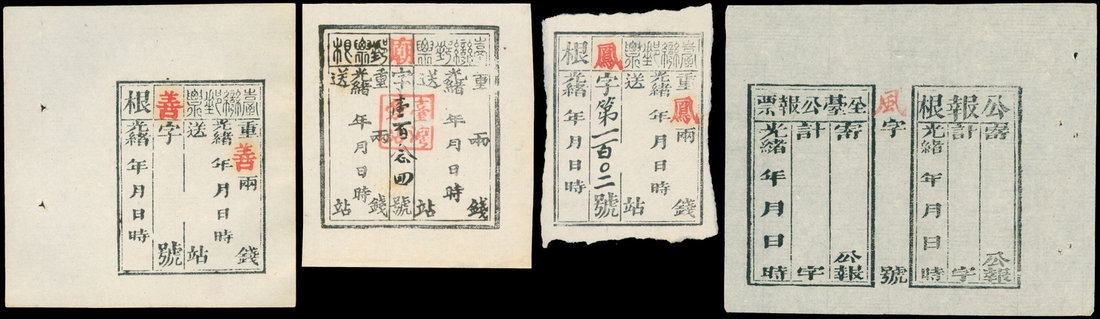 臺灣郵票
重善兩錢
光緒年月日時
送站
善字號
根
光緒年月日時
臺灣郵票
重兩錢
光緒年月日時
送站
廟字壹百念四號
郵票根
重兩錢
光緒年月日時
送站
臺灣郵票
重鳳兩錢
光緒年月日時
送站
鳳字第一百〇二號
根
光緒年月日時
公報根
寄公報
計字
光緒年月日時
風字號
全臺公報票
寄公報
計字
光緒年月日時